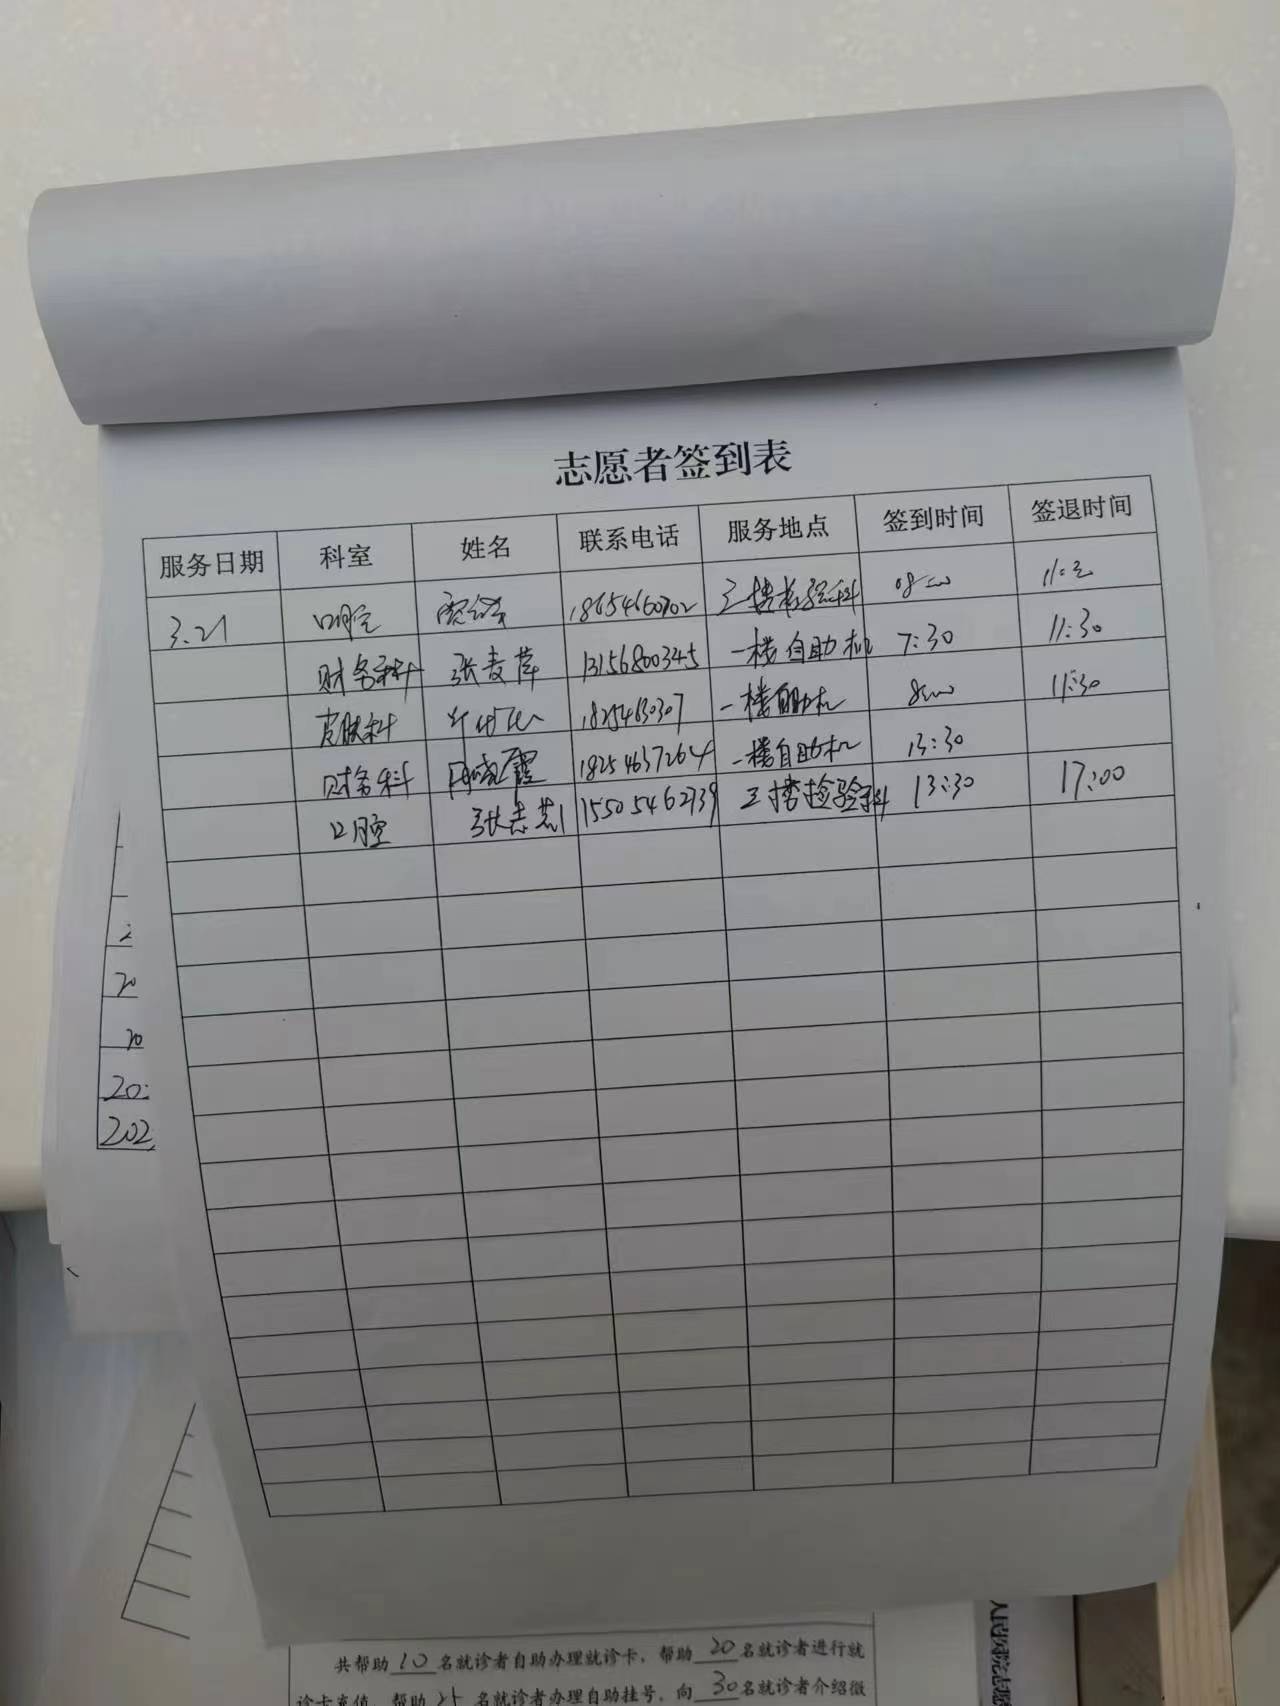 志愿者签到表
服务日期 科室 姓名 联系电话 服务地点 签到时间 签退时间
3.21 口腔 18654660702 三楼检验科 08:00
财务科 张麦萍 13156800345 一楼自助机 7:30 11:30
皮肤科 18254630307 一楼自助机 8:00 11:30
财务科 18254637264 一楼自助机 13:30
口腔 张志芸 15505462739 三楼检验科 13:30 17:00
20
20
20
202
共帮助 10 名就诊者自助办理就诊卡，帮助 20 名就诊者进行就
诊卡充值，帮助 25 名就诊者办理自助挂号，向 30 名就诊者介绍微
人民医院志愿